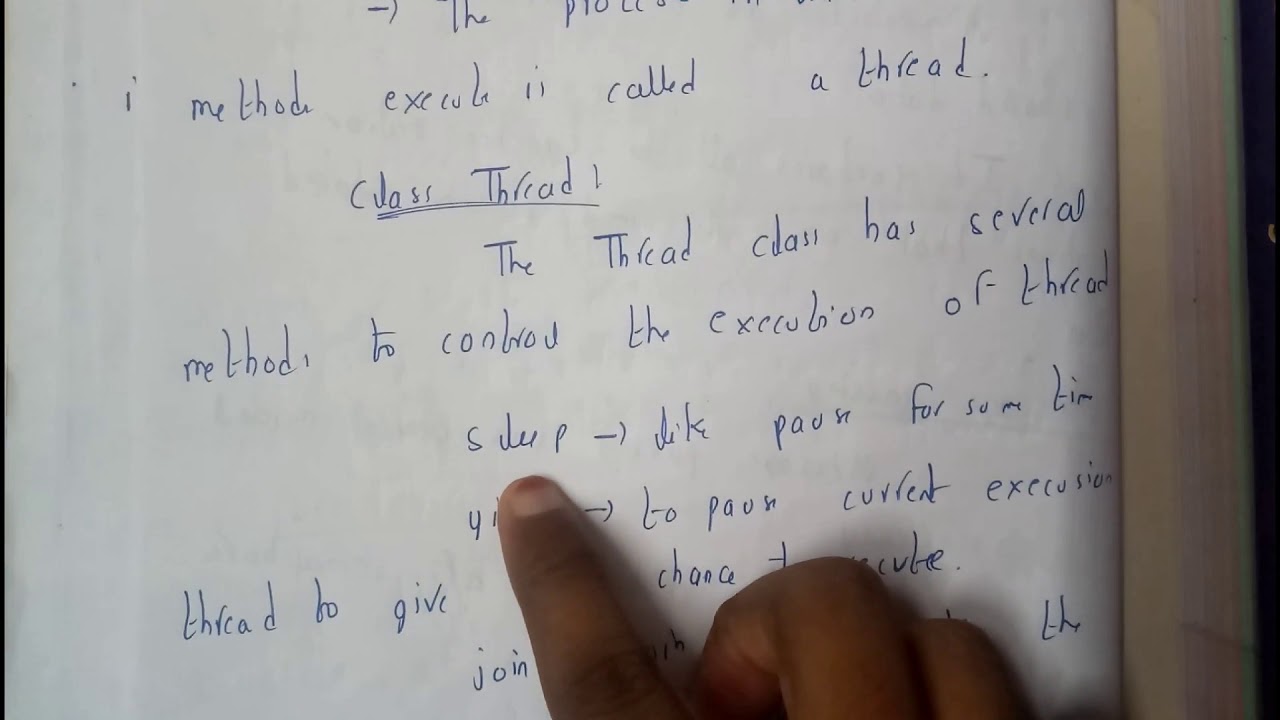 → The process
i method execute is called a thread.
Class Thread:
The Thread class has several
methods to control the execution of thread
sleep → like pause for some tim
→ to pause current execusion
thread to give chance execute.
join the